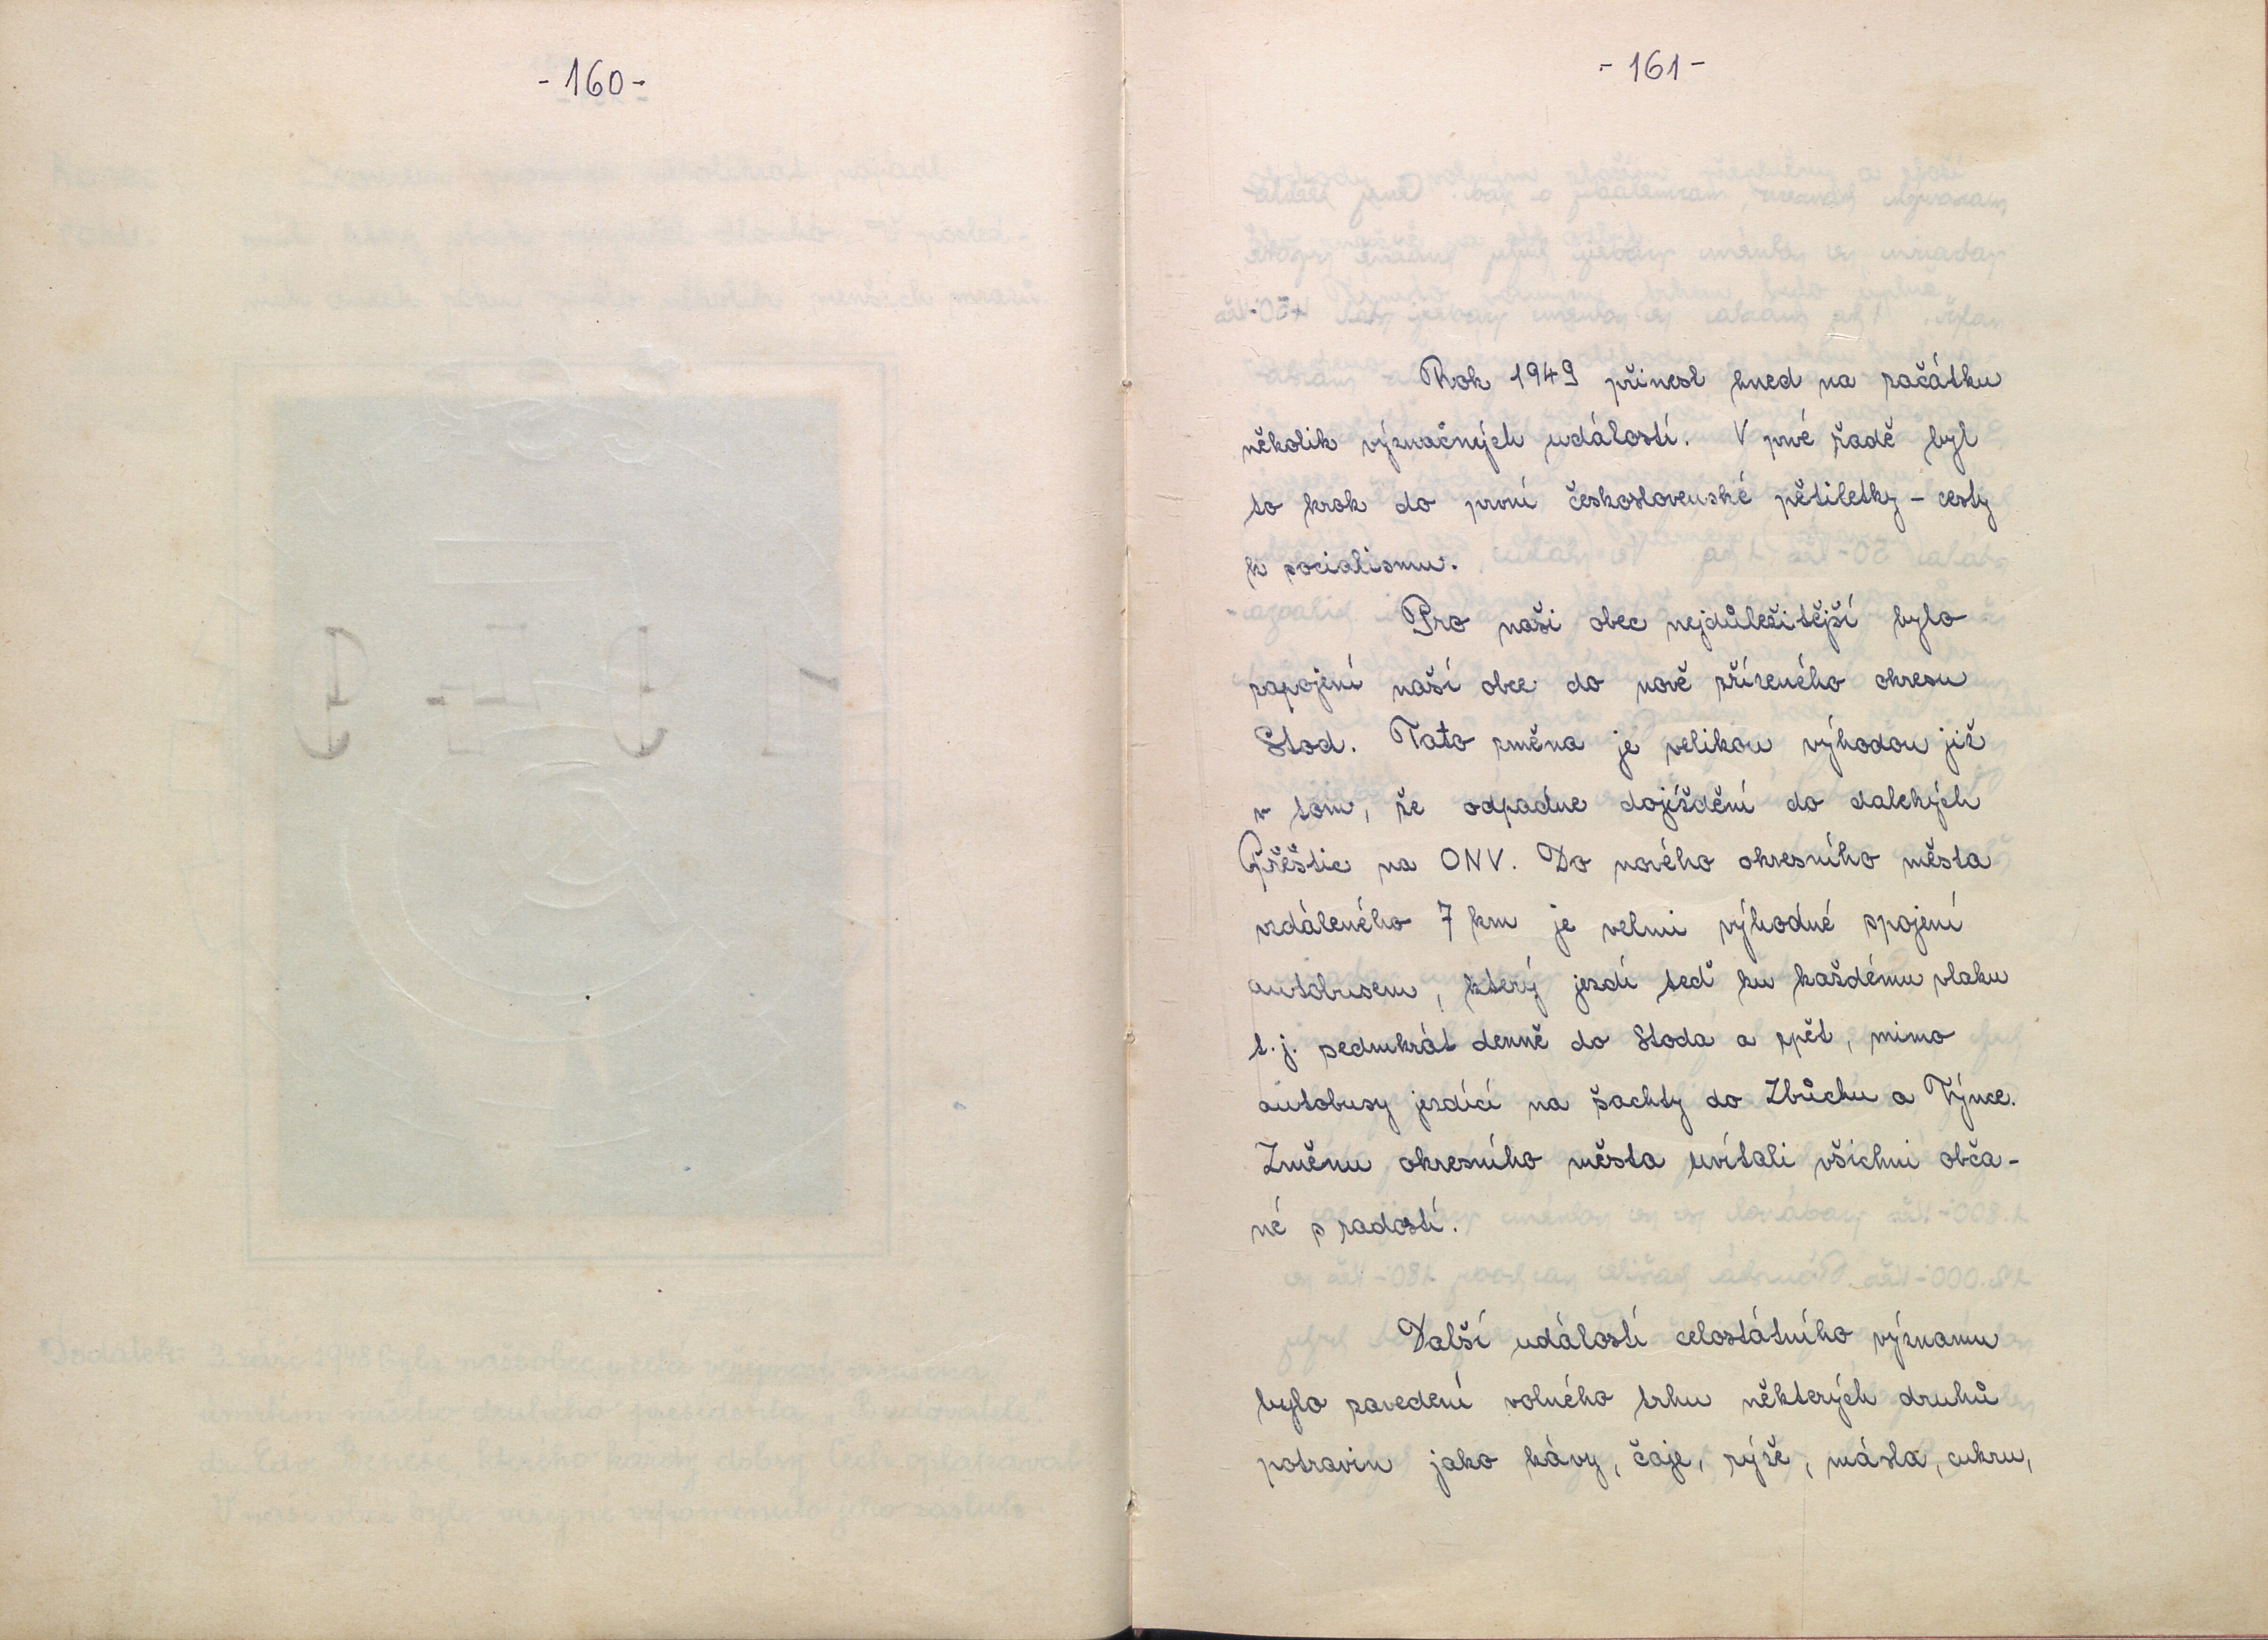 - 160 -
- 161 -
Rok 1949 přinesl hned na začátku
několik význačných událostí. V prvé řadě byl
to krok do první československé pětiletky - cesty
k socialismu.
Pro naši obec nejdůležitější bylo
zapojení naší obce do nově zřízeného okresu
Stod. Tato změna je velikou výhodou již
v tom, že odpadne dojíždění do dalekých
Přeštic na ONV. Do nového okresního města
vzdáleného 7 km je velmi výhodné spojení
autobusem, který jezdí teď ku každému vlaku
t.j. sedmkrát denně do Stoda a zpět, mimo
autobusy jezdící na šachty do Zbůchu a Týnce.
Změnu okresního města uvítali všichni obča-
né s radostí.
Další událostí celostátního významu
bylo zavedení volného trhu některých druhů
potravin jako kávy, čaje, rýže, másla, cukru,